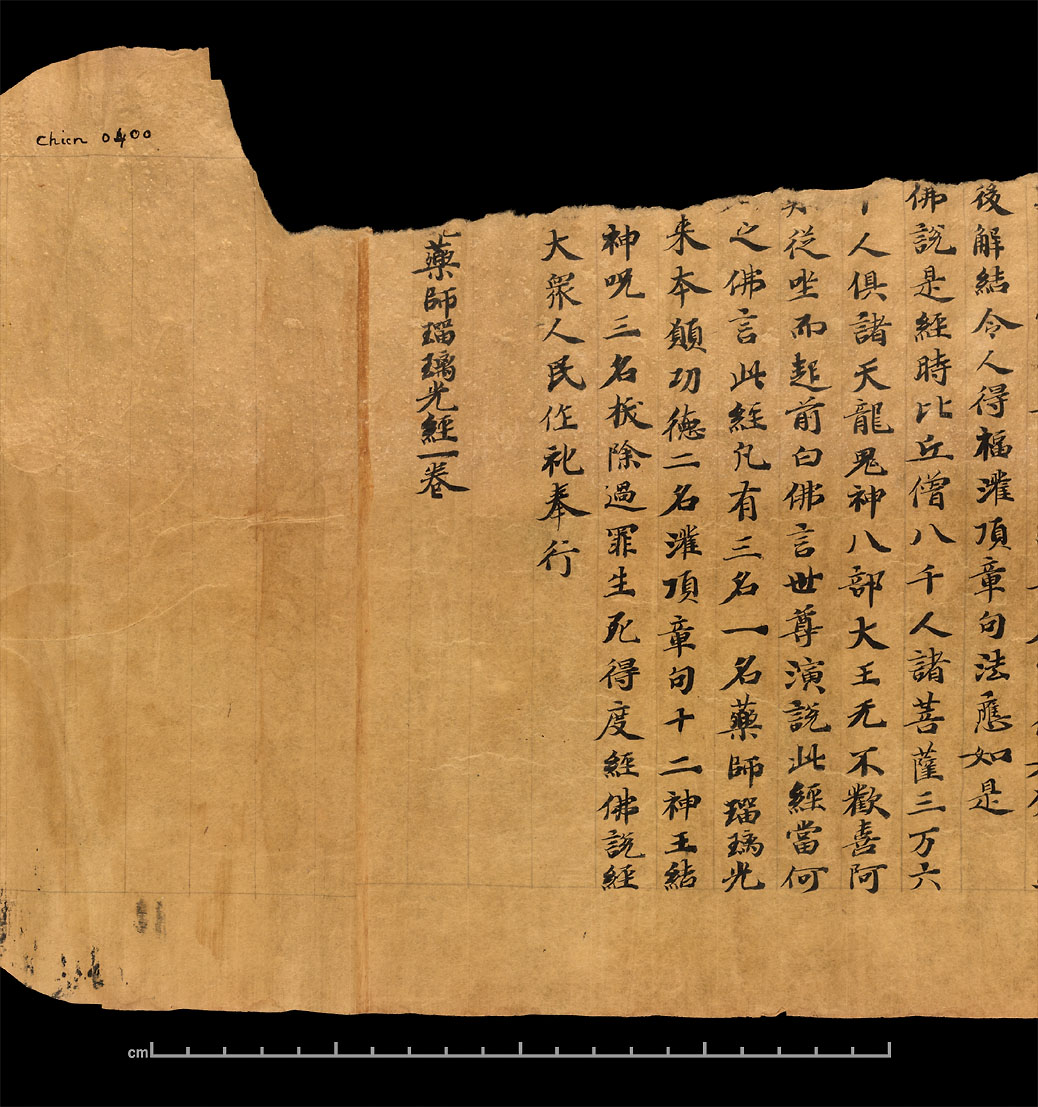 後解結令人得福灌頂章句法應如是
佛說是經時比丘僧八千人諸菩薩三万六
人俱諸天龍鬼神八部大王无不歡喜阿
從坐而起前白佛言世尊演說此經當何
之佛言此經凡有三名一名藥師瑠璃光
来本願功德二名灌頂章句十二神王結
神呪三名拔除過罪生死得度經佛說經
大眾人民作礼奉行
藥師瑠璃光經一卷
Chien 0400
cm